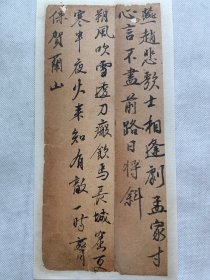 燕趙悲歌士相逢劇孟家寸
心言不盡前路日將斜
朔風吹雪透刀瘢飲馬長城窟更
寒半夜火來知有敵一時齊
保賀蘭山